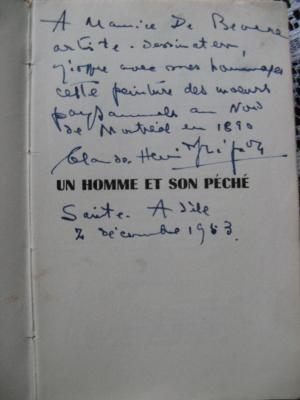 A Maurice De Bevere
artiste-dessinateur,
j'offre avec mes hommages
cette peinture des moeurs
paysannes au Nord
de Montréal en 1890
Claude-Henri Grignon
UN HOMME ET SON PÉCHÉ
Sainte-Adèle
2 décembre 1953.